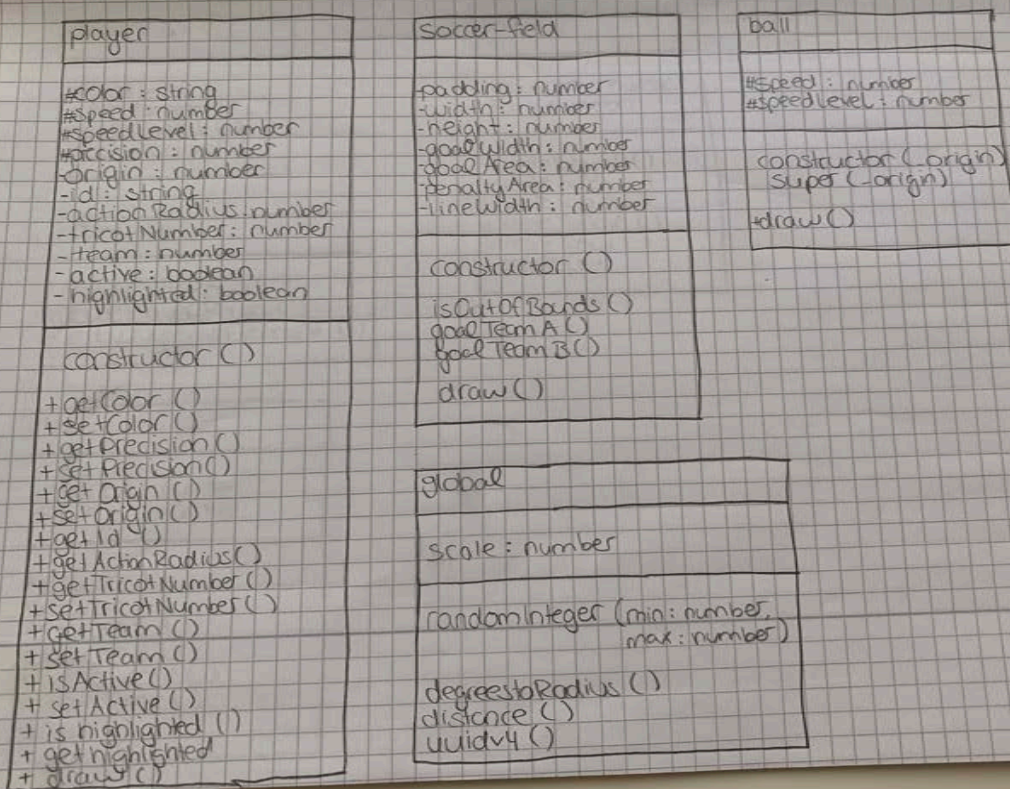 player
#color : string
#speed : number
#speedLevel : number
#precision : number
-origin : number
-id : string
-actionRadius : number
-tricotNumber : number
-team : number
-active : boolean
- highlighted : boolean
constructor ()
+ getColor ()
+ setColor ()
+ getPrecision ()
+ setPrecision ()
+ get Origin ()
+ setOrigin ()
+ getId ()
+ getActionRadius ()
+ getTricotNumber ()
+ setTricotNumber ()
+ getTeam ()
+ setTeam ()
+ isActive ()
+ setActive ()
+ is highlighted ()
+ gethighlighted
+ draw ()
soccer-field
-padding : number
-width : number
-height : number
-goalWidth : number
-goalArea : number
-penaltyArea : number
-lineWidth : number
constructor ()
isOutOfBounds ()
goalTeamA ()
goalTeamB ()
draw ()
ball
#speed : number
#speedLevel : number
constructor (-origin)
super (-origin)
+draw ()
global
scale : number
randomInteger (min : number,
max : number)
degreestoRadius ()
distance ()
uuidv4 ()